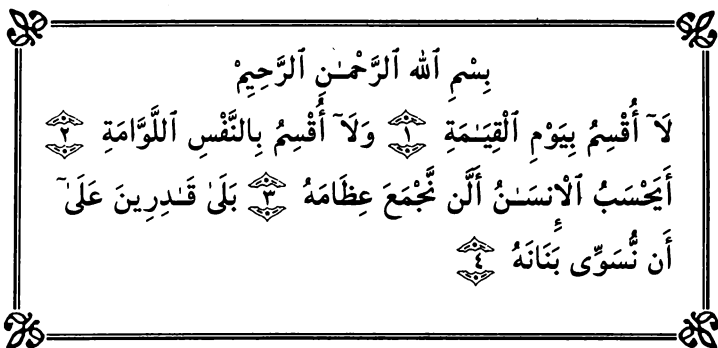 بِسْمِ ٱللَّهِ ٱلرَّحْمَـٰنِ ٱلرَّحِيمِْ
لَآ أُقْسِمُ بِيَوْمِ ٱلْقِيَـٰمَةِ ١ وَلَآ أُقْسِمُ بِالنَّفْسِ ٱللَّوَّامَةِ ٢
أَيَحْسَبُ ٱلْإِنسَـٰنُ أَلَّن نَّجْمَعَ عِظَامَهُ ٣ بَلَىٰ قَـٰدِرِينَ عَلَىٰٓ
أَن نُّسَوِّى بَنَانَهُ ٤